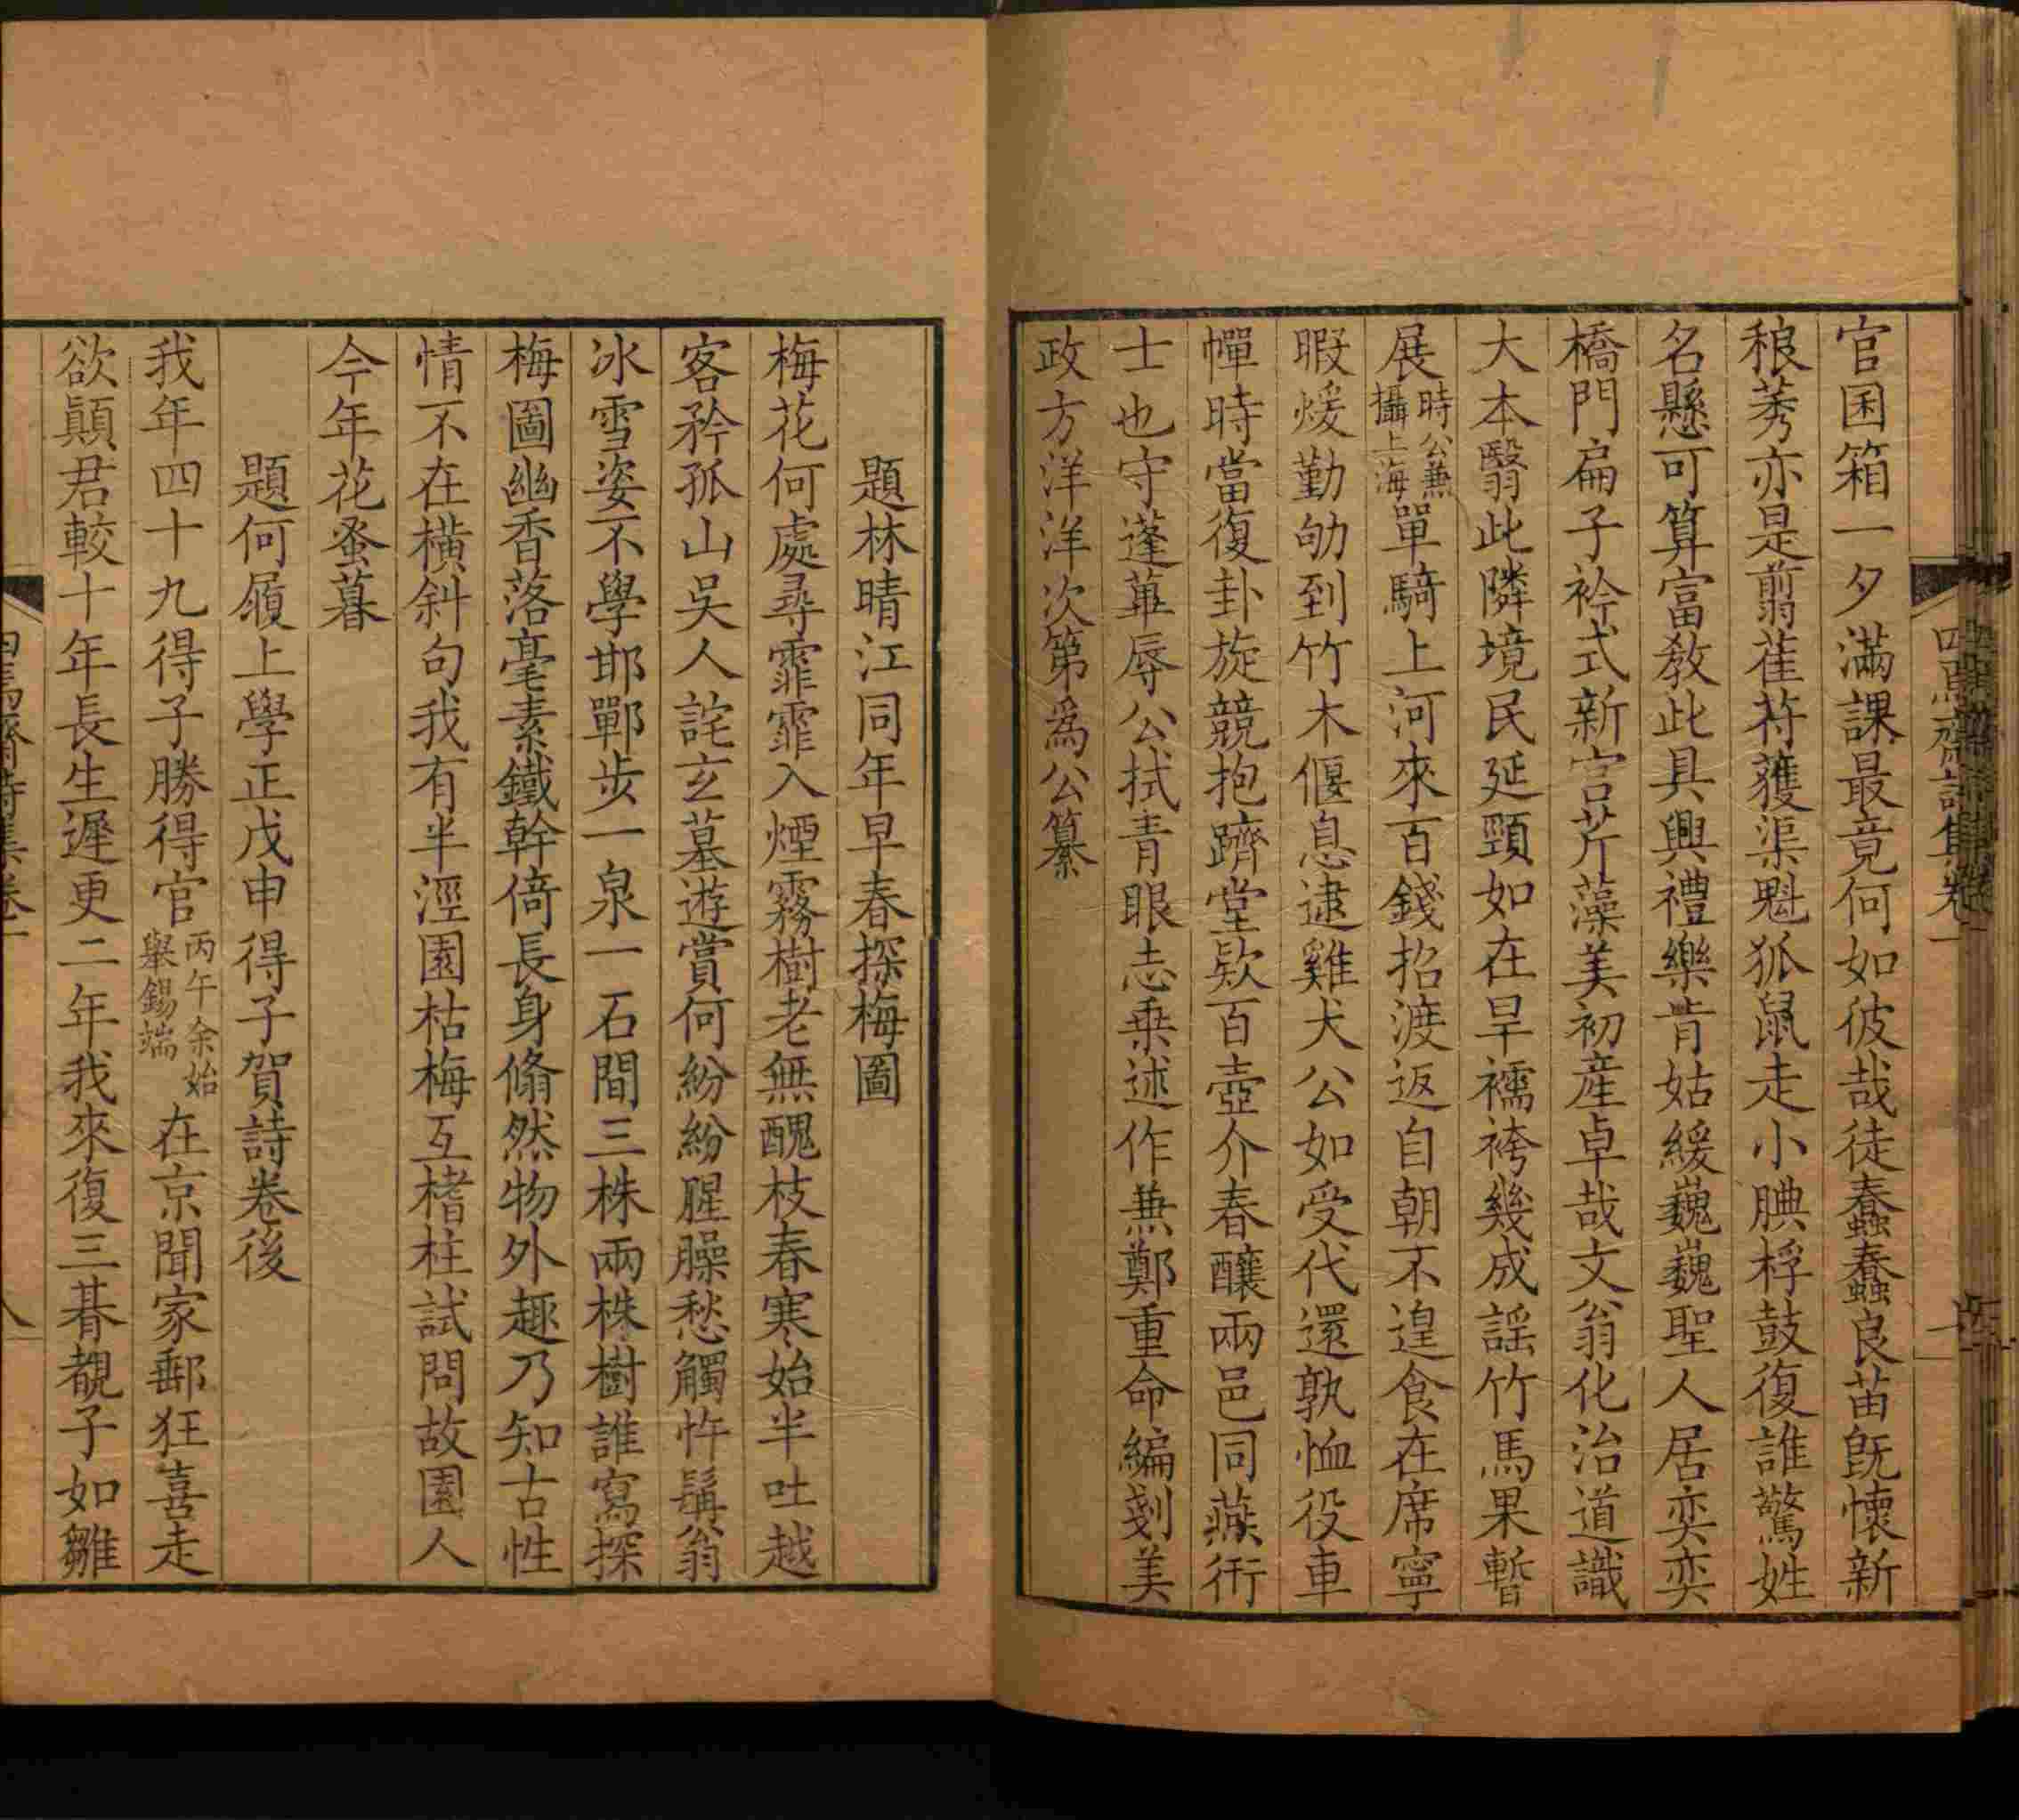 官囷箱一夕滿課最竟何如彼哉徒蠢蠢良苗旣懷新
稂莠亦是翦萑苻獲渠魁狐鼠走小腆桴鼓復誰驚姓
名懸可算富教此具興禮樂肯姑緩巍巍聖人居奕奕
橋門扁子衿式新宫芹藻美初產卓哉文翁化治道識
大本翳此隣境民延頸如在旱襦袴幾成謡竹馬果暫
展時公兼攝上海單騎上河來百錢招渡返自朝不遑食在席寧
暇煖勤劬到竹木偃息逮雞犬公如受代還孰恤役車
幝時當復卦旋競抱躋堂欵百壺介春釀兩邑同燕衎
士也守蓬蓽辱公拭青眼志乗述作兼鄭重命編剗美
政方洋洋次第爲公纂
題林晴江同年早春探梅圖
梅花何處尋霏霏入煙霧樹老無醜枝春寒始半吐越
客矜孤山吳人詫玄墓遊賞何紛紛腥臊愁觸忤髯翁
冰雪姿不學邯鄲步一泉一石間三株兩株樹誰寫探
梅圖幽香落毫素鐵幹倚長身翛然物外趣乃知古性
情不在橫斜句我有半溼園枯梅互榰柱試問故園人
今年花蚤暮
題何頎上學正戊申得子賀詩卷後
我年四十九得子勝得官丙午余始舉錫端在京聞家郵狂喜走
欲顚君較十年長生遲更二年我來復三朞覩子如雛
四焉齋詩集卷一